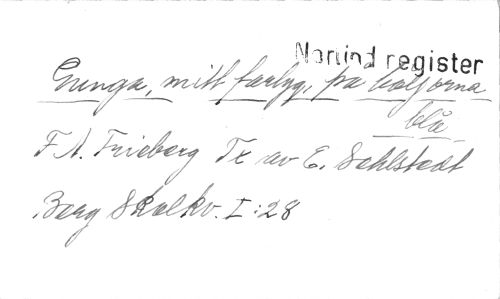 Norlind register
Gunga, mitt fartyg, på böljorna
blå
F. A. Frieberg Tx av E. Sehlstedt
Berg Skolkv. I:28